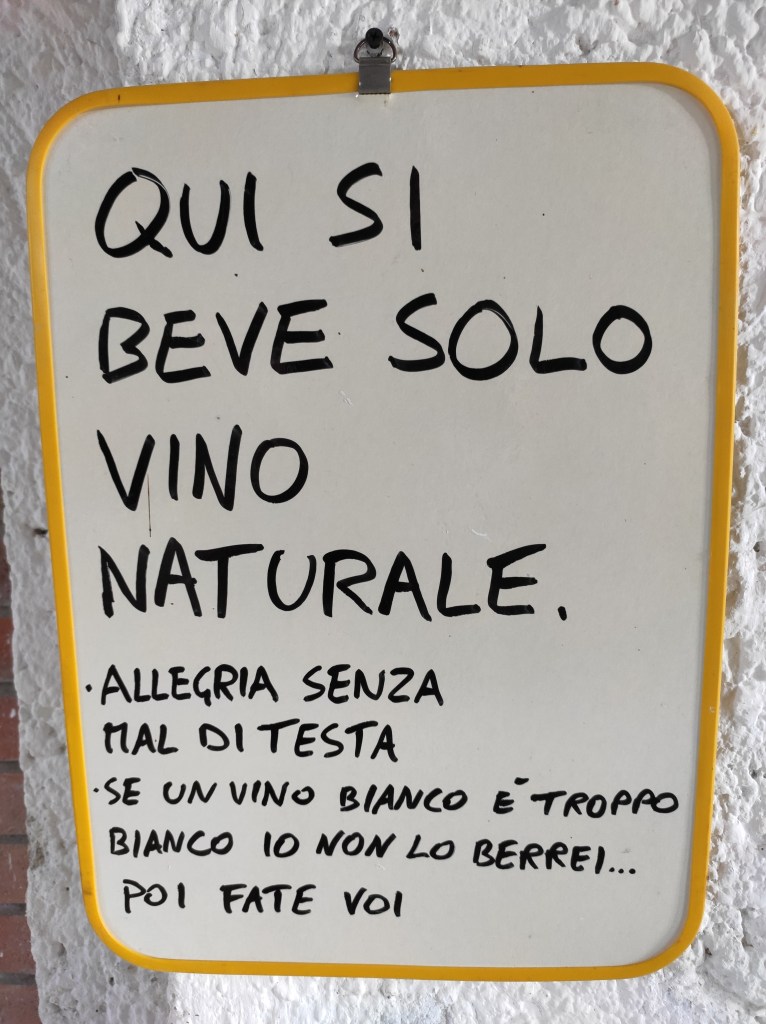 QUI SI
BEVE SOLO
VINO
NATURALE.
· ALLEGRIA SENZA
MAL DI TESTA
· SE UN VINO BIANCO È TROPPO
BIANCO IO NON LO BERREI...
POI FATE VOI